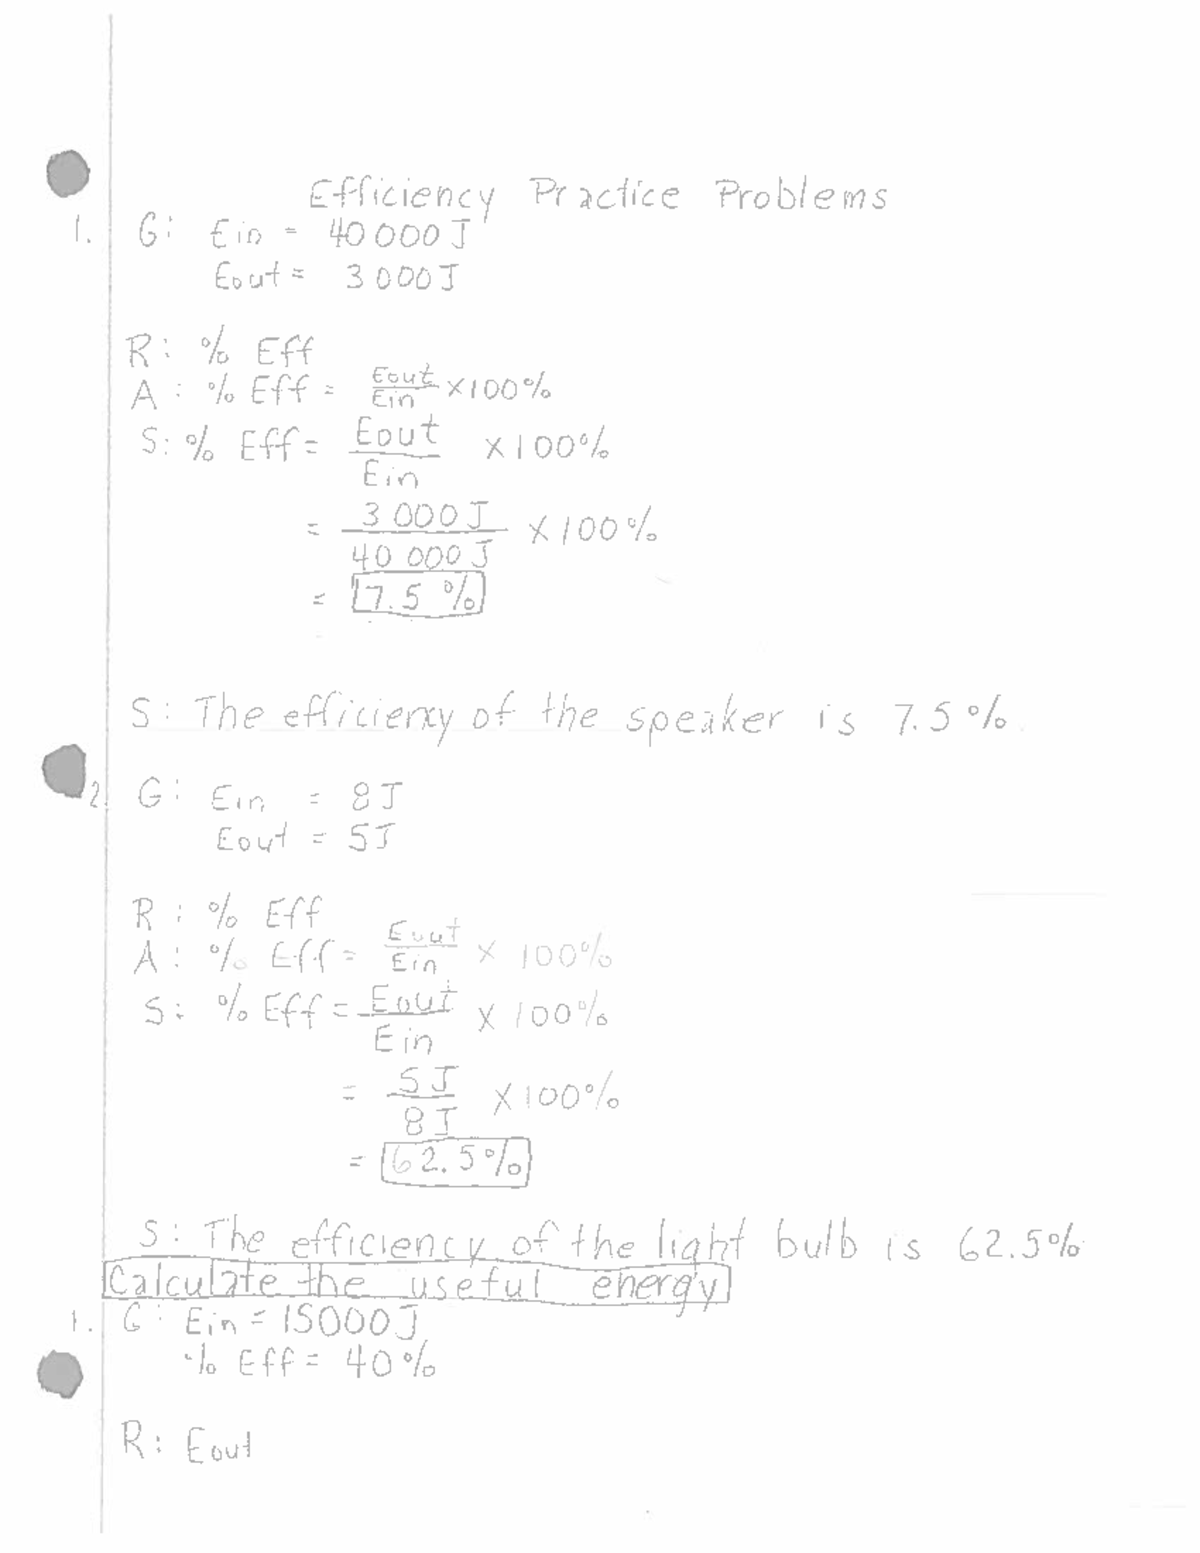 Efficiency Practice Problems
1. G: Ein = 40 000 J
Eout = 3 000 J
R: % Eff
A: % Eff = Eout/Ein ×100%
S: % Eff = Eout/Ein ×100%
= 3 000 J/40 000 J ×100%
= 7.5 %
S: The efficiency of the speaker is 7.5%.
2. G: Ein = 8J
Eout = 5J
R: % Eff
A: % Eff = Eout/Ein × 100%
S: % Eff = Eout/Ein × 100%
= 5J/8J ×100%
= 62.5%
S: The efficiency of the light bulb is 62.5%
Calculate the useful energy
1. G: Ein = 15000J
% Eff = 40%
R: Eout